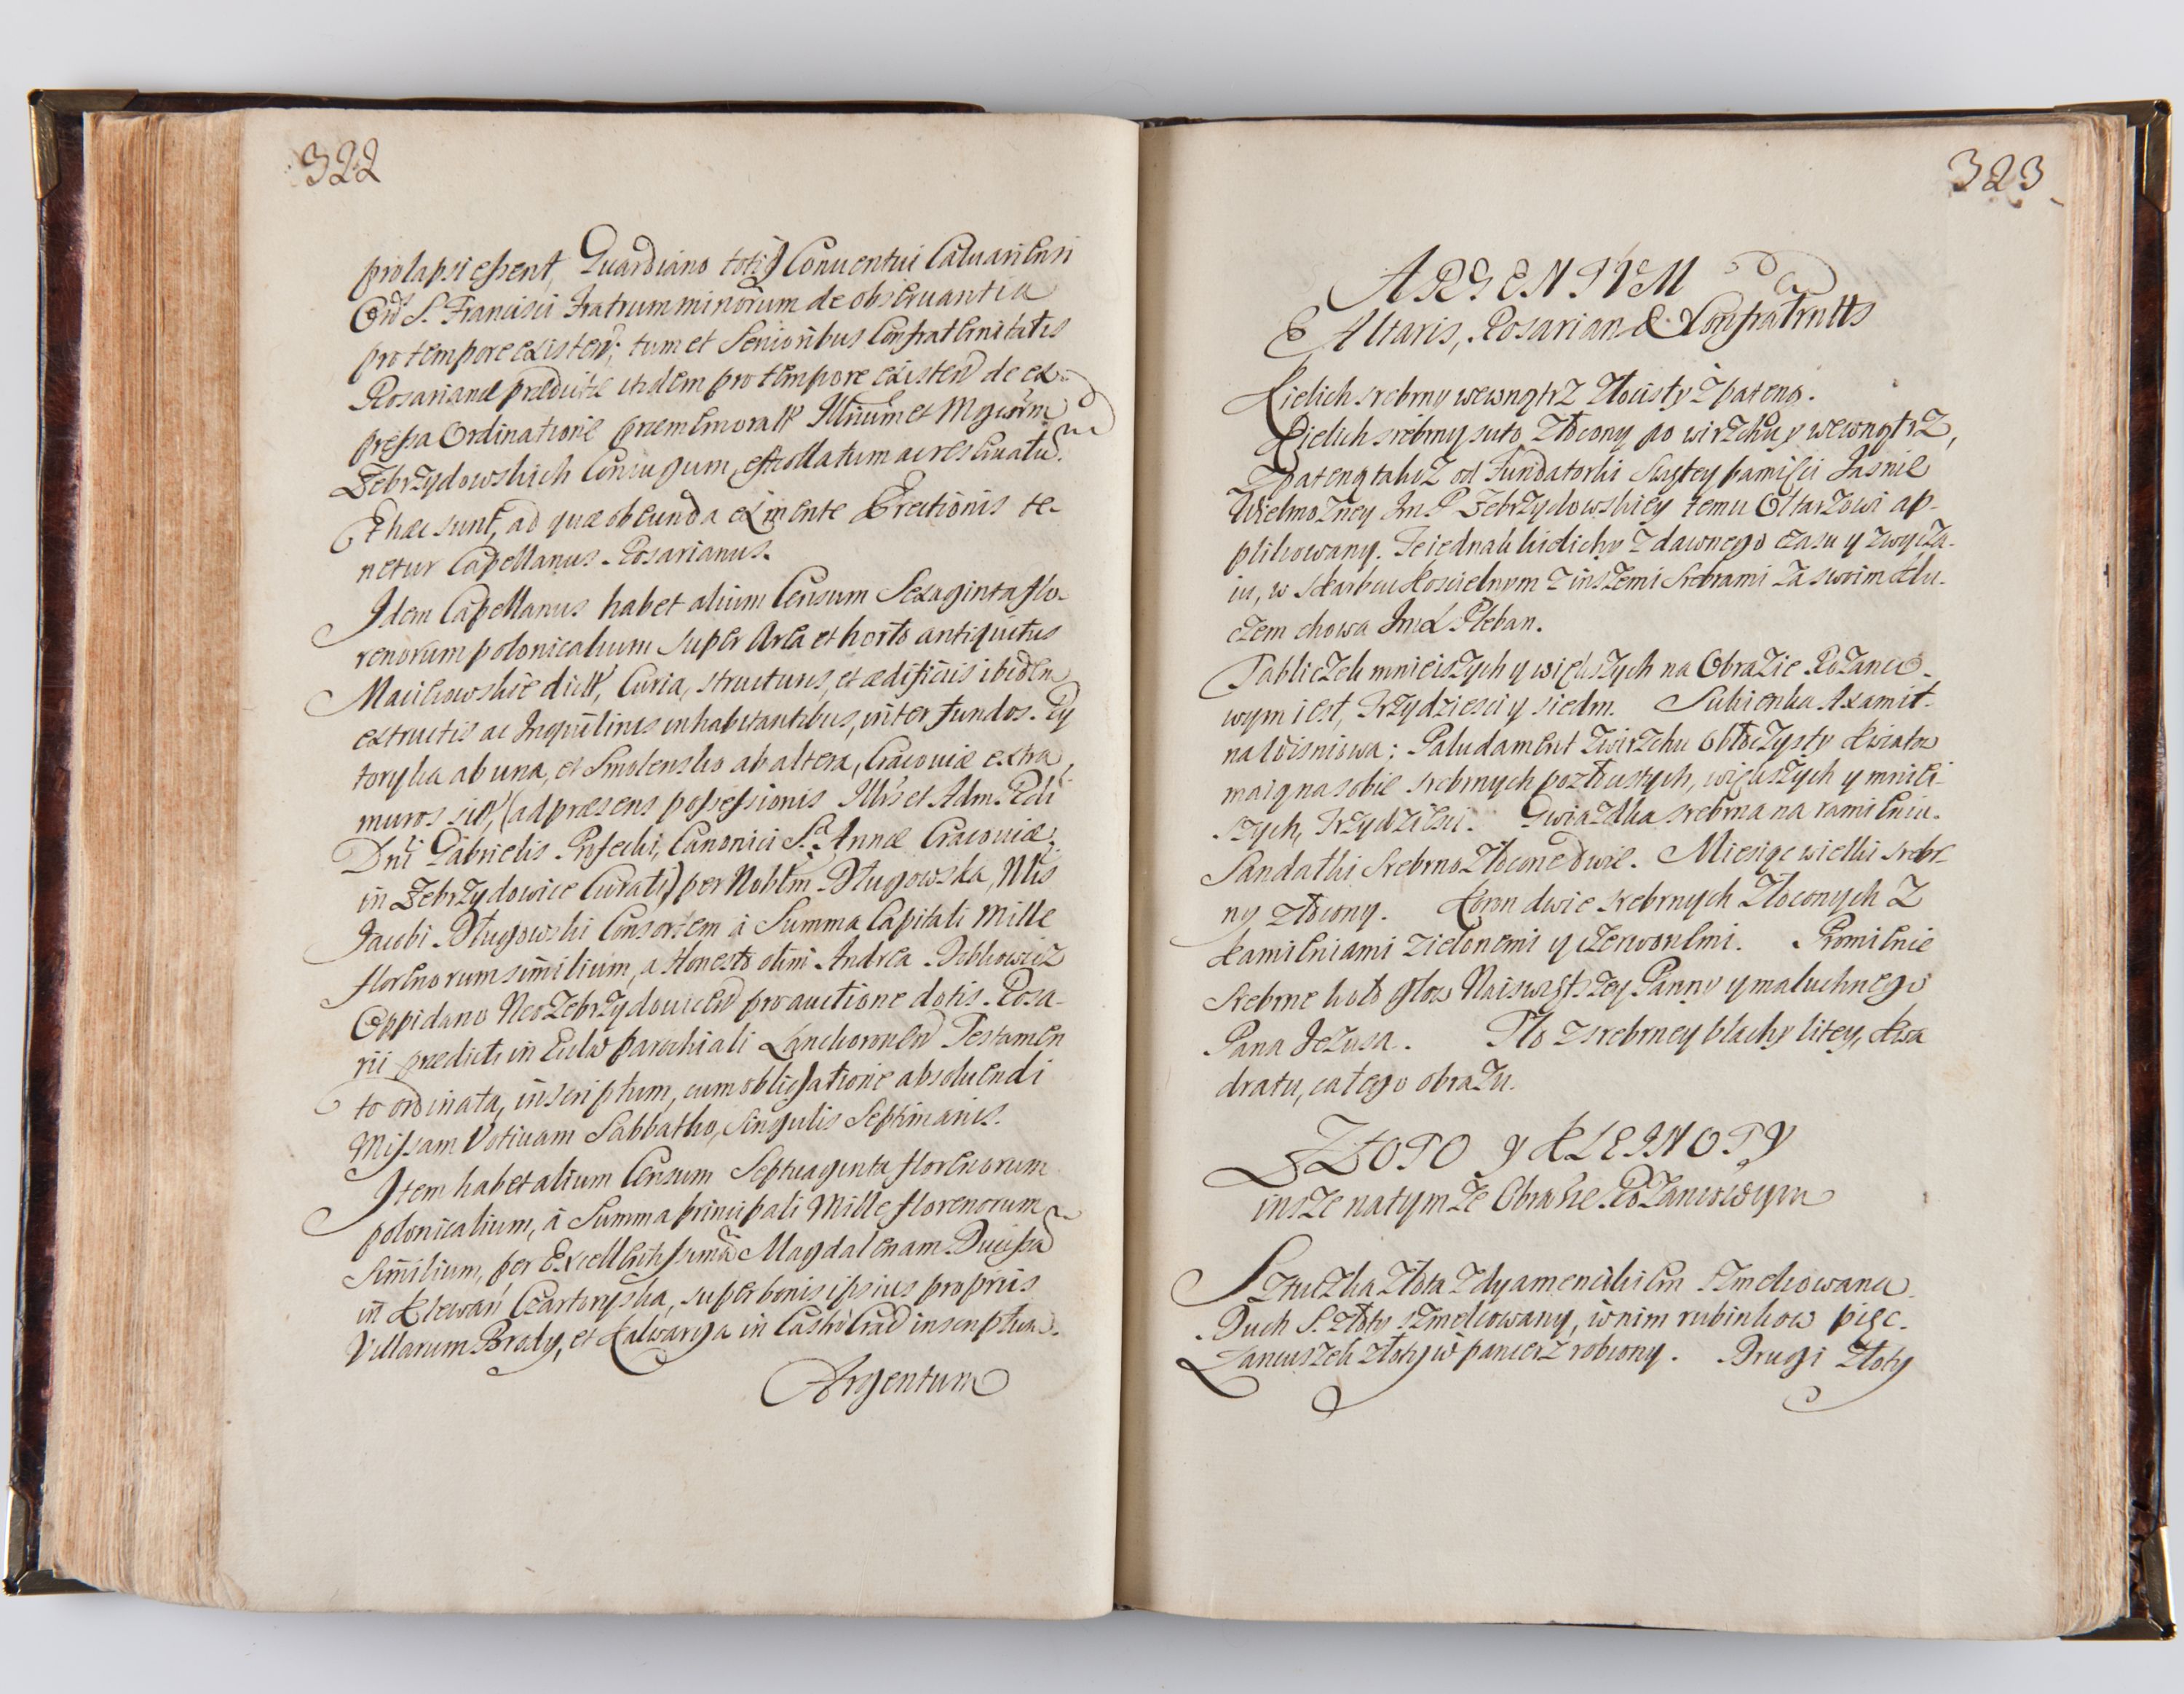 322
prolapsi essent, Guardiano totiq Conuentui Caluariensi
Ord S. Francisci Fratrum minorum de obseruantia
pro tempore existen, tum et Senioribus Confraternitatis
Rosarianæ prædictæ itidem pro tempore existen de ex-
pressa Ordinatione præmemorat Illrium et Mgcorum
Zebrzydowskich Coniugum, est collatum ac reseruatu.
Et hæc sunt, ad quæ obeunda ex mente Erectionis te-
netur Capellanus Rosarianus.
Idem Capellanus habet alium Censum Sexaginta flo-
renorum polonicalium super Area et horto antiquitus
Maćikowskie dict, Curia, structuris, et ædificijs ibidem
extructis ac Inquilinis inhabitantibus, inter fundos Py
toryka ab una, et Smolensko ab altera, Cracouiæ extra
muros sit, (ad præsens possessionis Illris et Adm. Rdi
Dni Gabrielis Pysecki, Canonici S. Annæ Cracouiæ,
in Zebrzydowice Curati) per Noblm Długowska, Nlis
Jacobi Długowski Consortem à Summa Capitali Mille
florenorum similium, a Honesto olim Andrea Bobkowicz
Oppidano NeoZebrzydouicen pro auctione dotis Rosa-
rii prædicti in Eccla parochiali Lanckoronen Testamen
to ordinata, inscriptum, cum obligatione absoluendi
Missam Votiuam Sabbatho, singulis Septimanis.
Item habet alium Censum Septuaginta florenorum
polonicalium, à Summa principali Mille florenorum
similium, per Excellentissima Magdalenam Ducissa
in Klewań Czartoryska, super bonis ipsius proprijs
Villarum Brody, et Kalwarya in Castro Crac inscriptum.
Argentum
323
ARGENTVM
Altaris, Rosarianæ Confratrntts
Kielich srebrny wewnątrz złocisty z pateną.
Kielich srebrny suto złocony po wirzchu y wewnątrz,
z pateną takąż od Fundatorki Swiętey pamięci Jasnie
Wielmożney Im P Zebrzydowskiey temu Ołtarzowi ap-
plikowany. Te iednak kielichy z dawnego czasu y zwycza-
iu, w skarbcu Koscielnym z inszemi Srebrami za swoim klu-
czem chowa Imć Pleban.
Tabliczek mnieiszych y większych na Obrazie Rożańco-
wym iest, trzydziesci y siedm. Sukienka Axamit-
na wisniowa: Paludament zwirzchu obłoczysty kwiatow
maią na sobie srebrnych pozłocistych, większych y mniei-
szych, trzydziesci. Gwiazdka srebrna na ramieniu.
Sandałki srebrno złocone dwie. Miesiąc wielki srebr-
ny złocony. Koron dwie srebrnych złoconych z
kamieniami zielonemi y czerwonemi. Promienie
srebrne koło głow Naiswiętszey Panny y maluchnego
Pana Jezusa. Tło z srebrney blachy litey, kwa
dratu, całego obrazu.
ZŁOTO y KLEINOTY
insze na tymże Obrazie Rożańcowym
Sztuczka złota z dyamencikiem szmelcowana
Duch S. złoty szmelcowany, w nim rubinkow pięć.
Łancuszek złoty w pancerz robiony. Drugi złoty